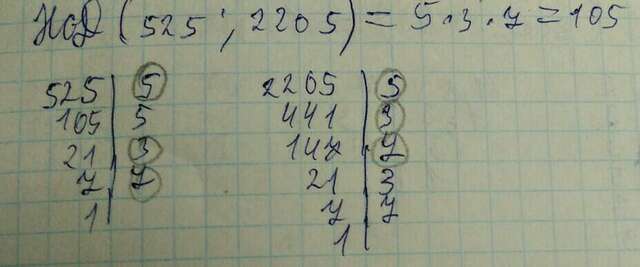 НОД (525; 2205) = 5·3·7 = 105
525 | 5
105 | 5
21 | 3
7 | 7
1 |
2205 | 5
441 | 3
147 | 7
21 | 3
7 | 7
1 |